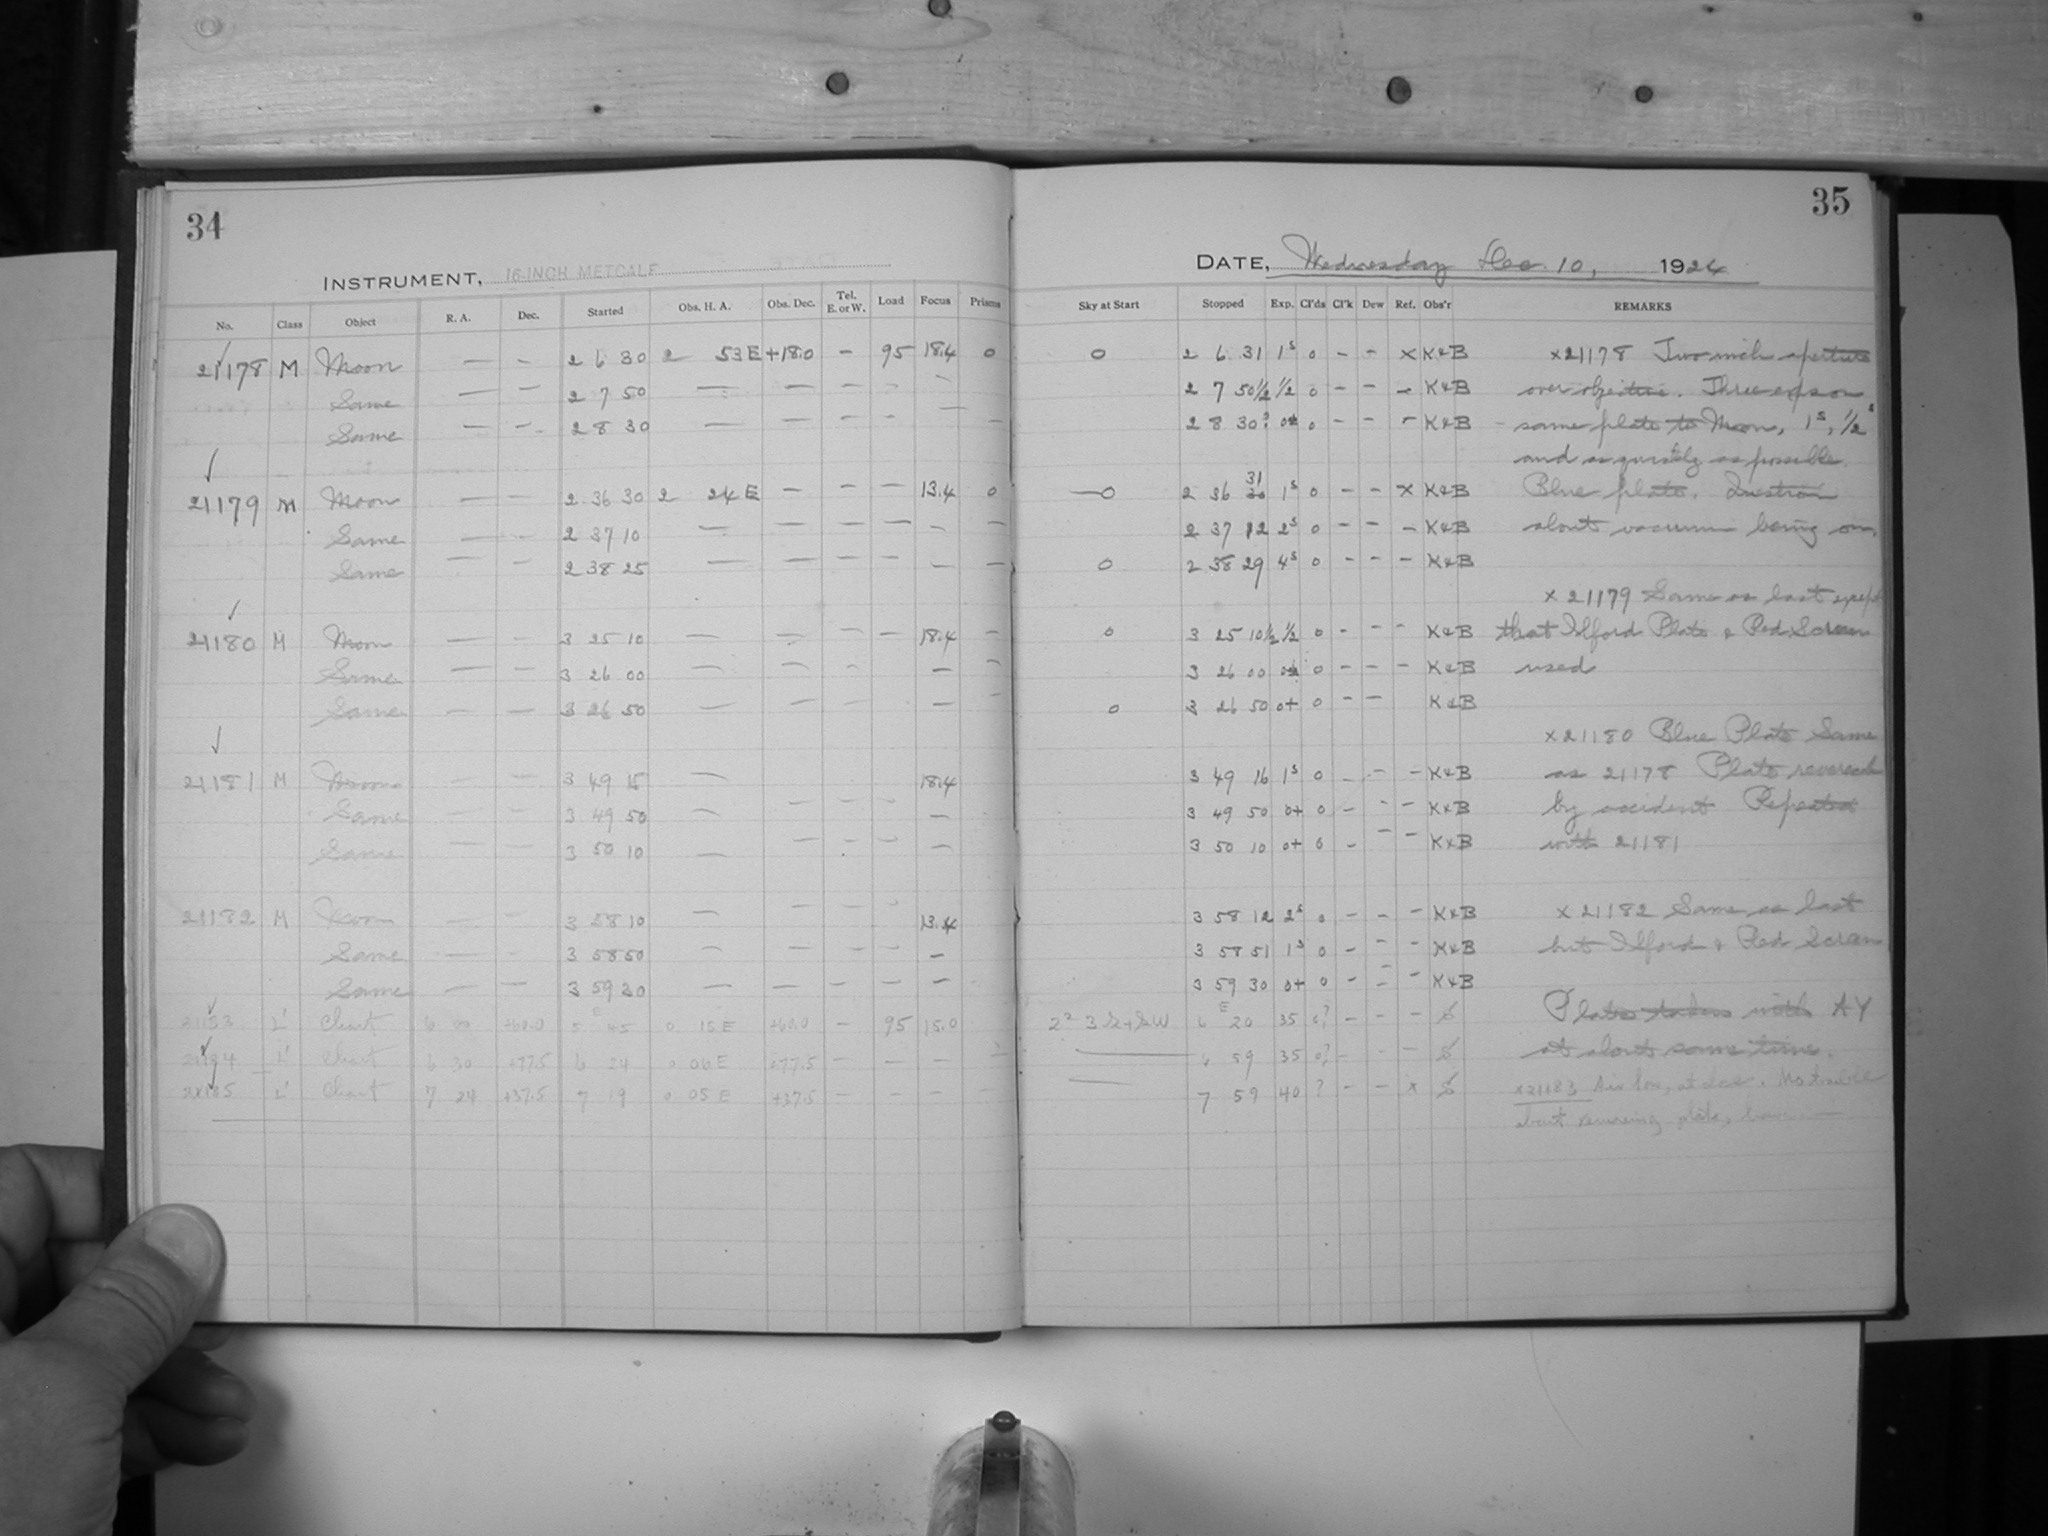 34
INSTRUMENT, 16-INCH METCALF
No. Class Object R. A. Dec. Started Obs. H. A. Obs. Dec. Tel. E. or W. Load Focus Prisms
21178 M Moon — — 2 6 30 2 53 E +18.0 — 95 18.4 0
Same — — 2 7 50 — — — - -
Same — — 2 8 30 — — — - — —
21179 M Moon — — 2 36 30 2 24 E — — — 13.4 0
Same — — 2 37 10 — — — — — —
Same — — 2 38 25 — — — — — —
21180 M Moon — — 3 25 10 — — — — 18.4 —
Same — — 3 26 00 — — — —
Same — — 3 26 50 — — — — —
21181 M Moon — — 3 49 15 — 18.4
Same — — 3 49 50 — — — — —
Same — — 3 50 10 — — — — —
21182 M Moon — — 3 58 10 — — — — 13.4
Same — — 3 58 50 — — — — —
Same — — 3 59 30 — — — — — —
21183 L' Chart 6 00 +60.0 5 45 0 15 E +60.0 — 95 15.0
21184 L' Chart 6 30 +77.5 6 24 0 06 E +77.5 — — — —
21185 L' Chart 7 24 +37.5 7 19 0 05 E +37.5 — — — —
35
DATE, Wednesday Dec. 10, 1924
Sky at Start Stopped Exp. Cl'ds Cl'k Dew Ref. Obs'r REMARKS
0 2 6 31 1s 0 - - x K&B x21178 Two inch aperture
2 7 50½ ½ 0 - - - K&B over objective. Three exps on
2 8 30? 0+ 0 - - - K&B same plate to Moon, 1s, ½s
and as quickly as possible.
—0 2 36 31 1s 0 - - x K&B Blue plate. Question
2 37 12 2s 0 - - - K&B about vacuum being on.
0 2 38 29 4s 0 - - - K&B
x 21179 Same as last except
0 3 25 10½ ½ 0 - - - K&B that Ilford Plate & Red Screen
3 26 00 0+ 0 - - - K&B used
0 3 26 50 0+ 0 - - K&B
x21180 Blue Plate Same
3 49 16 1s 0 - - - K&B as 21178 Plate reversed
3 49 50 0+ 0 - - - K&B by accident Repeated
3 50 10 0+ 0 - - - K&B with 21181
3 58 12 2s 0 - - - K&B x 21182 Same as last
3 58 51 1s 0 - - - K&B but Ilford & Red Screen
3 59 30 0+ 0 - - - K&B
6 20 35 0? - - - Plates taken with AY
6 59 35 0? - - - at about same time.
7 59 40 ? - - x x21183 Air low, at dec. No trouble
about remaining plates,